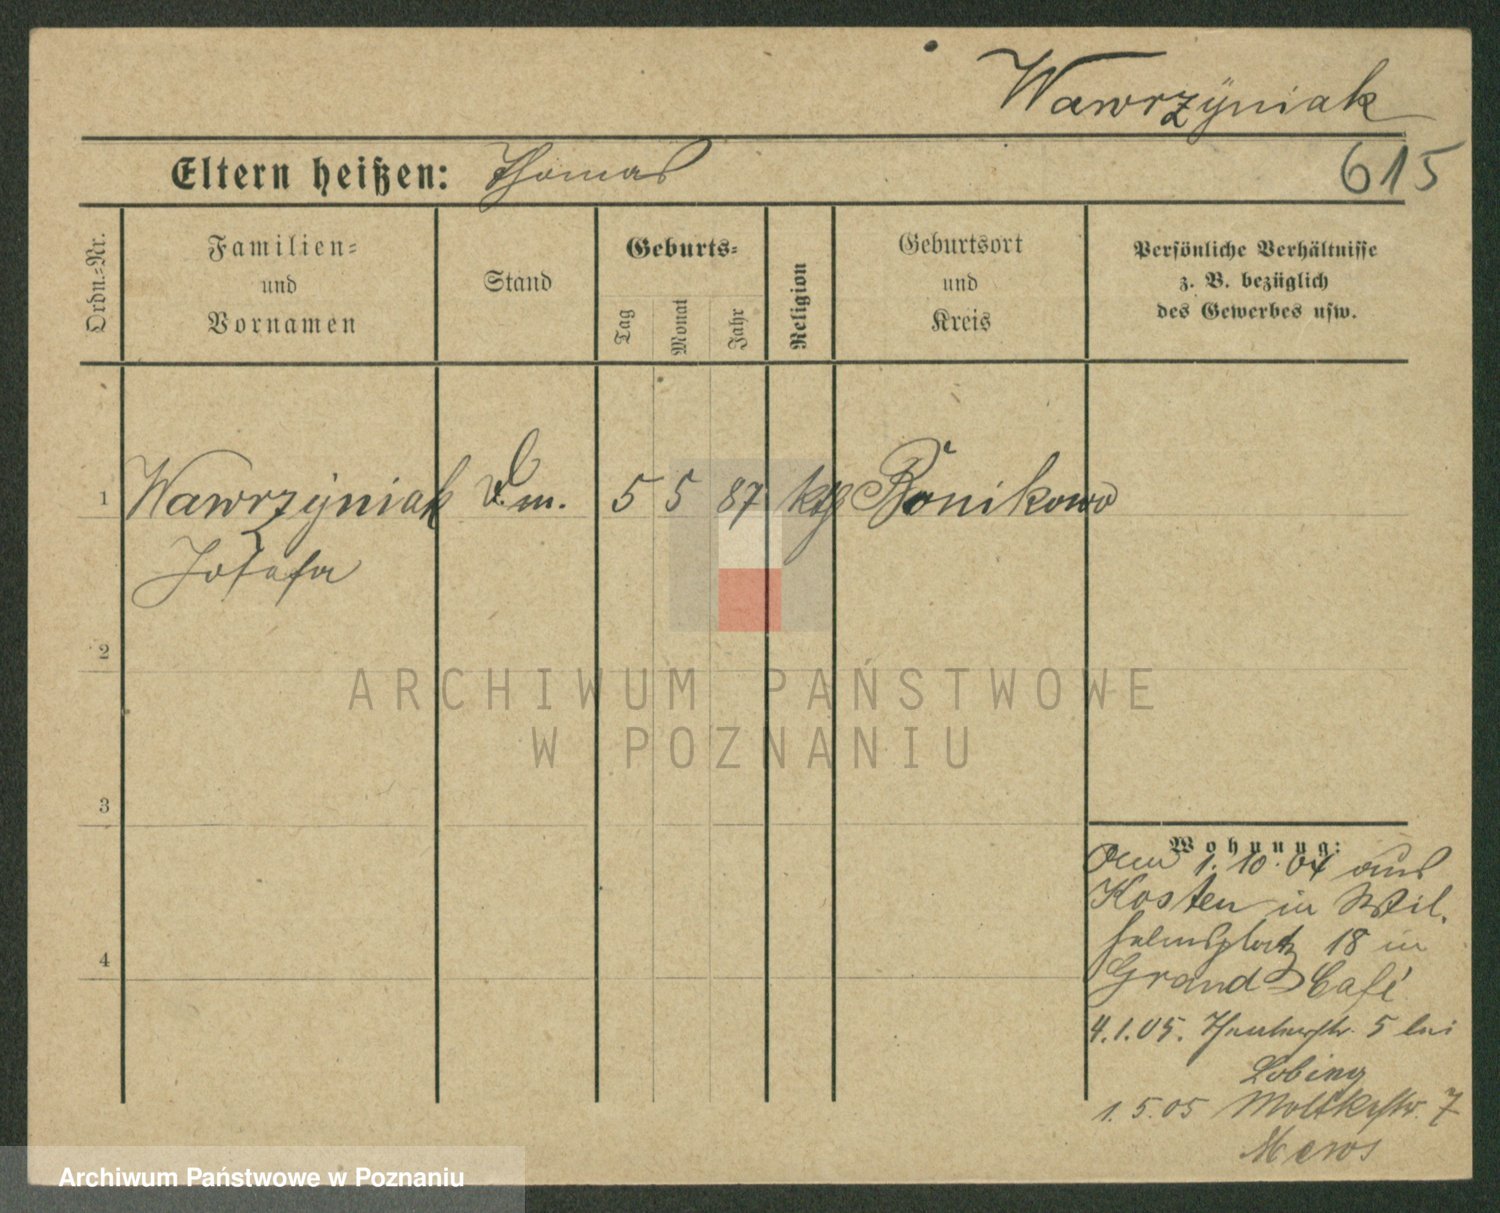 Wawrzÿniak
Eltern heißen: Thomas
615
Ordn.-Nr.
Familien-
und
Vornamen
Stand
Geburts-
Tag
Monat
Jahr
Religion
Geburtsort
und
Kreis
Persönliche Verhältnisse
z. B. bezüglich
des Gewerbes usw.
1 Wawrzÿniak 5 5 87 kth Bonikowo
Josefa
2
3
4
Wohnung:
1.10.04 aus
Kosten in Wil-
helmsplatz 18 in
Grand Café
4.1.05. Theaterstr. 5 bei
Lobing
1.5.05 Moltkestr. 7
Mews
ARCHIWUM PAŃSTWOWE
W POZNANIU
Archiwum Państwowe w Poznaniu